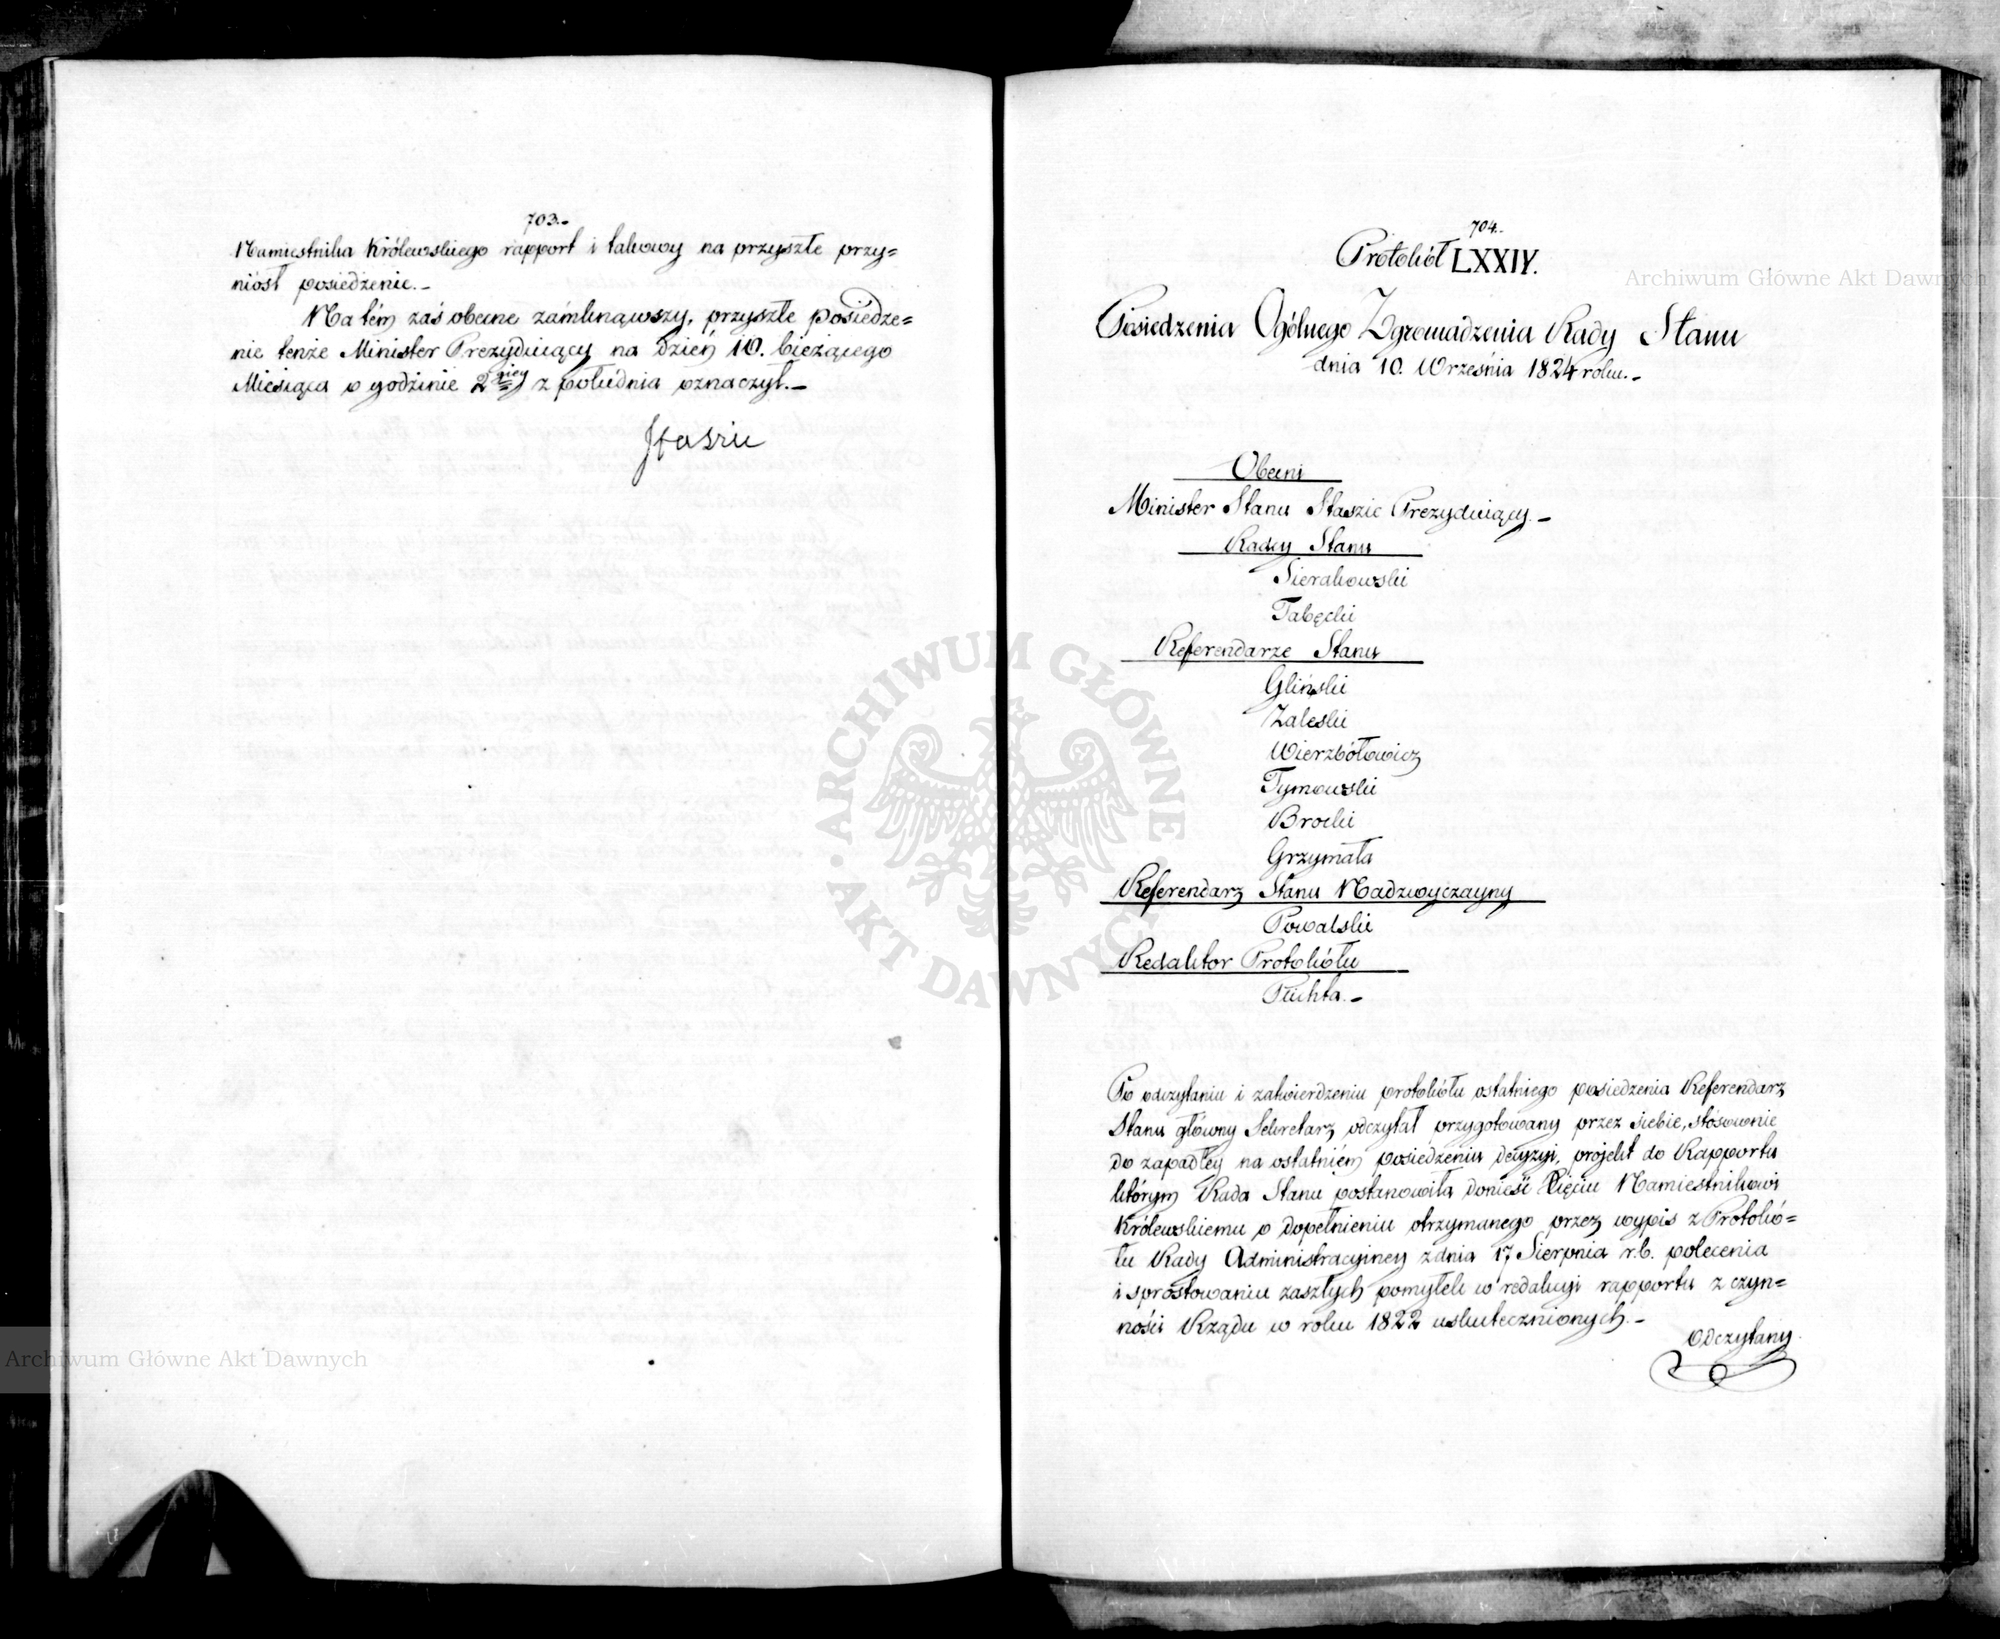 703.-
Namiestnika Królewskiego rapport i takowy na przyszłe przy=
niósł posiedzenie.-
Na tém zaś obecne zamknąwszy, przyszłe posiedze=
nie tenże Minister Prezyduiący na dzień 10. bieżącego
Miesiąca o godzinie 2giey z południa oznaczył.-
Staszic
704.
Protokół LXXIV.
Posiedzenia Ogólnego Zgromadzenia Rady Stanu
dnia 10. Września 1824 roku.-
Obecni
Minister Stanu Staszic Prezyduiący.-
Radcy Stanu
Sierakowski
Tabęcki
Referendarze Stanu
Gliński
Zaleski
Wierzbołowicz
Tymowski
Brocki
Grzymała
Referendarz Stanu Nadzwyczayny
Powalski
Redaktor Protokółu
Puchta.-
Po odczytaniu i zatwierdzeniu protokółu ostatniego posiedzenia Referendarz
Stanu główny Sekretarz odczytał przygotowany przez siebie, stósownie
do zapadłey na ostatniém posiedzeniu decyzyi, projekt do Rapportu
którym Rada Stanu postanowiła donieść Xięciu Namiestnikowi
Królewskiemu o dopełnieniu otrzymanego przez wypis z Protokó=
łu Rady Administracyiney z dnia 17 Sierpnia r.b. polecenia
i sprostowaniu zaszłych pomyłek w redakcyi rapportu z czyn=
ności Rządu w roku 1822 uskutecznionych.-
Odczytany
Archiwum Główne Akt Dawnych
ARCHIWUM GŁÓWNE · AKT DAWNYCH ·
Archiwum Główne Akt Dawnych